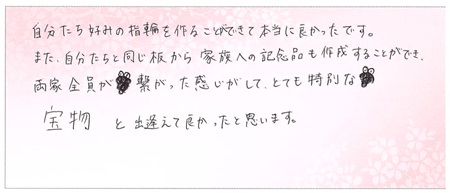 自分たち好みの指輪を作ることができて本当に良かったです。
また、自分たちと同じ板から家族への記念品も作成することができ、
両家全員が繋がった感じがして、とても特別な
宝物と出逢えて良かったと思います。